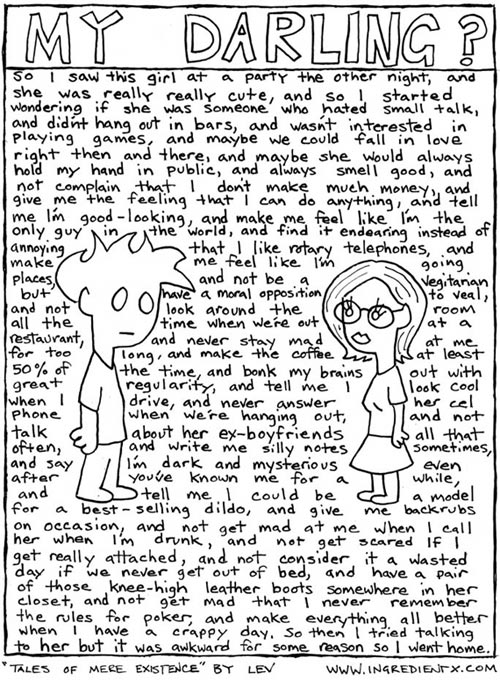 MY DARLING?
So I saw this girl at a party the other night, and
she was really really cute, and so I started
wondering if she was someone who hated small talk,
and didn't hang out in bars, and wasn't interested in
playing games, and maybe we could fall in love
right then and there, and maybe she would always
hold my hand in public, and always smell good, and
not complain that I don't make much money, and
give me the feeling that I can do anything, and tell
me I'm good-looking, and make me feel like I'm the
only guy in the world, and find it endearing instead of
annoying that I like rotary telephones, and
make me feel like I'm going
places, and not be a Vegitarian
but have a moral opposition to veal,
and not look around the room
all the time when we're out at a
restaurant, and never stay mad at me
for too long, and make the coffee at least
50% of the time, and bonk my brains out with
great regularity, and tell me I look cool
when I drive, and never answer her cel
phone when we're hanging out, and not
talk about her ex-boyfriends all that
often, and write me silly notes sometimes,
and say I'm dark and mysterious even
after you've known me for a while,
and tell me I could be a model
for a best-selling dildo, and give me backrubs
on occasion, and not get mad at me when I call
her when I'm drunk, and not get scared If I
get really attached, and not consider it a wasted
day if we never get out of bed, and have a pair
of those knee-high leather boots somewhere in her
closet, and not get mad that I never remember
the rules for poker, and make everything all better
when I have a crappy day. So then I tried talking
to her but it was awkward for some reason so I went home.
"TALES OF MERE EXISTENCE" BY LEV WWW.INGREDIENTX.COM